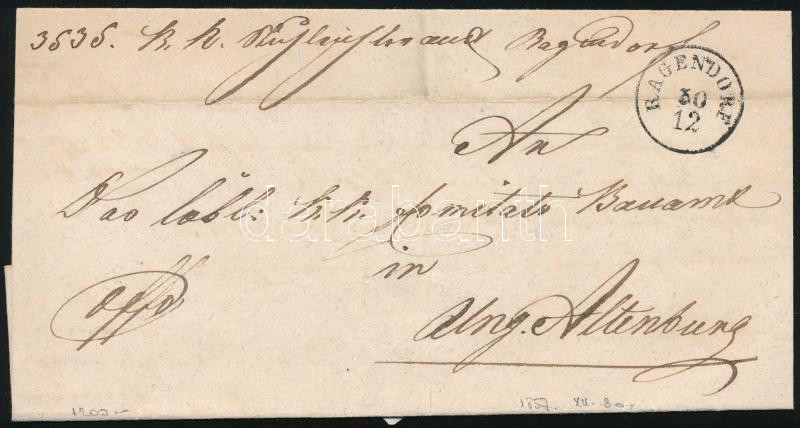 3535. K. K. Stuhlrichteramt Ragendorf
RAGENDORF
30
12
An
Das löbl: K. K. Comitats Bauamt
in
Ung. Altenburg
offo
darabanth
1857. XII. 30.